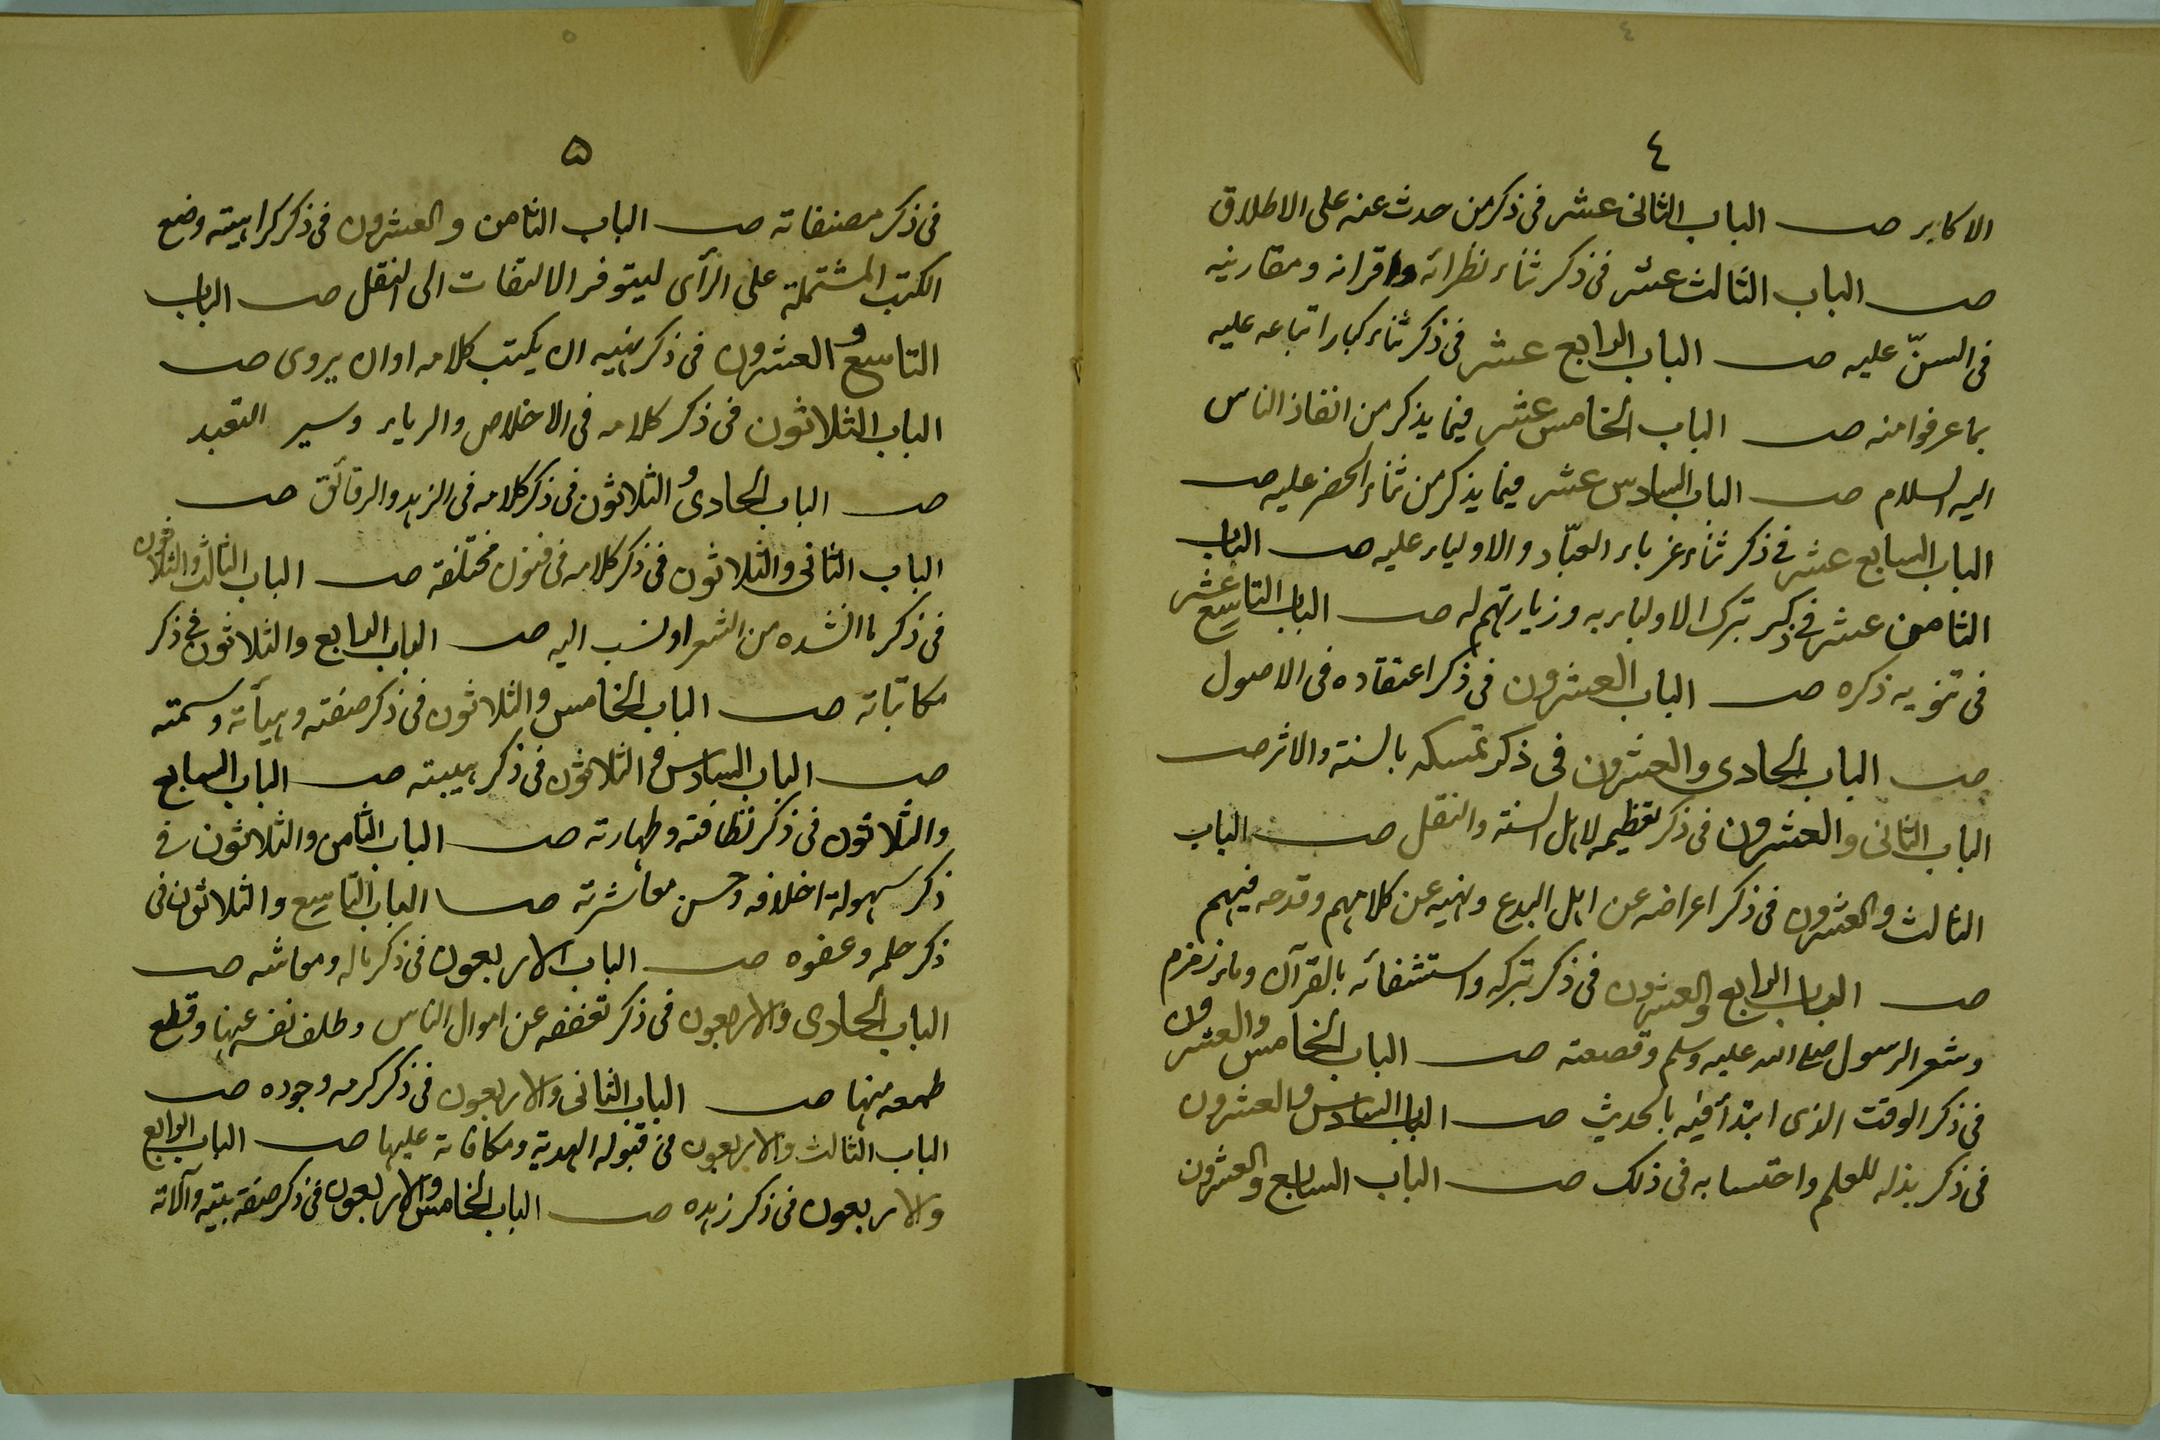 ٤
٤
الاكابر صــ الباب الثانى عشر فى ذكر من حدث عنه على الاطلاق
صــ الباب الثالث عشر فى ذكر ثناء نظرائه واقرانه ومقاربيه
فى السنّ عليه صــ الباب الرابع عشر فى ذكر ثناء كبار اتباعه عليه
بما عرفوا منه صــ الباب الخامس عشر فيما يذكر من انفاذ الناس
اليه السلام صــ الباب السادس عشر فيما يذكر من ثناء الخضر عليه صــ
الباب السابع عشر فى ذكر ثناء غرباء العبّاد والاولياء عليه صــ الباب
الثامن عشر فى ذكر تبرك الاولياء به وزيارتهم له صــ الباب التاسع عشر
فى تنويه ذكره صــ الباب العشرون فى ذكر اعتقاده فى الاصول
صــ الباب الحادى والعشرون فى ذكر تمسكه بالسنة والاثر صــ
الباب الثانى والعشرون فى ذكر تعظيمه لاهل السنة والنقل صــ الباب
الثالث والعشرون فى ذكر اعراضه عن اهل البدع ونهيه عن كلامهم وقدحه فيهم
صــ الباب الرابع والعشرون فى ذكر تبركه واستشفائه بالقرآن وماء زمزم
وشعر الرسول صلى الله عليه وسلم وقصعته صــ الباب الخامس والعشرون
فى ذكر الوقت الذى ابتدأ فيه بالحديث صــ الباب السادس والعشرون
فى ذكر بذله للعلم واحتسابه فى ذلك صــ الباب السابع والعشرون
٥
٥
فى ذكر مصنفاته صــ الباب الثامن والعشرون فى ذكر كراهيته وضع
الكتب المشتملة على الرأى ليتوفر الالتفات الى النقل صــ الباب
التاسع والعشرون فى ذكر نهيه ان يكتب كلامه او ان يروى صــ
الباب الثلاثون فى ذكر كلامه فى الاخلاص والرياء وسير التعبد
صــ الباب الحادى والثلاثون فى ذكر كلامه فى الزهد والرقائق صــ
الباب الثانى والثلاثون فى ذكر كلامه فى فنون مختلفة صــ الباب الثالث والثلاثون
فى ذكر ما انشده من الشعر او نسب اليه صــ الباب الرابع والثلاثون فى ذكر
مكاتباته صــ الباب الخامس والثلاثون فى ذكر صفته وهيأته وسمته
صــ الباب السادس والثلاثون فى ذكر هيبته صــ الباب السابع
والثلاثون فى ذكر نظافته وطهارته صــ الباب الثامن والثلاثون فى
ذكر سهولة اخلاقه وحسن معاشرته صــ الباب التاسع والثلاثون فى
ذكر حلمه وعفوه صــ الباب الاربعون فى ذكر ماله ومعاشه صــ
الباب الحادى والاربعون فى ذكر تعففه عن اموال الناس وظلف نفسه عنها وقطع
طمعه منها صــ الباب الثانى والاربعون فى ذكر كرمه وجوده صــ
الباب الثالث والاربعون فى قبوله الهدية ومكافاته عليها صــ الباب الرابع
والاربعون فى ذكر زهده صــ الباب الخامس والاربعون فى ذكر صفة بيته وآلاته